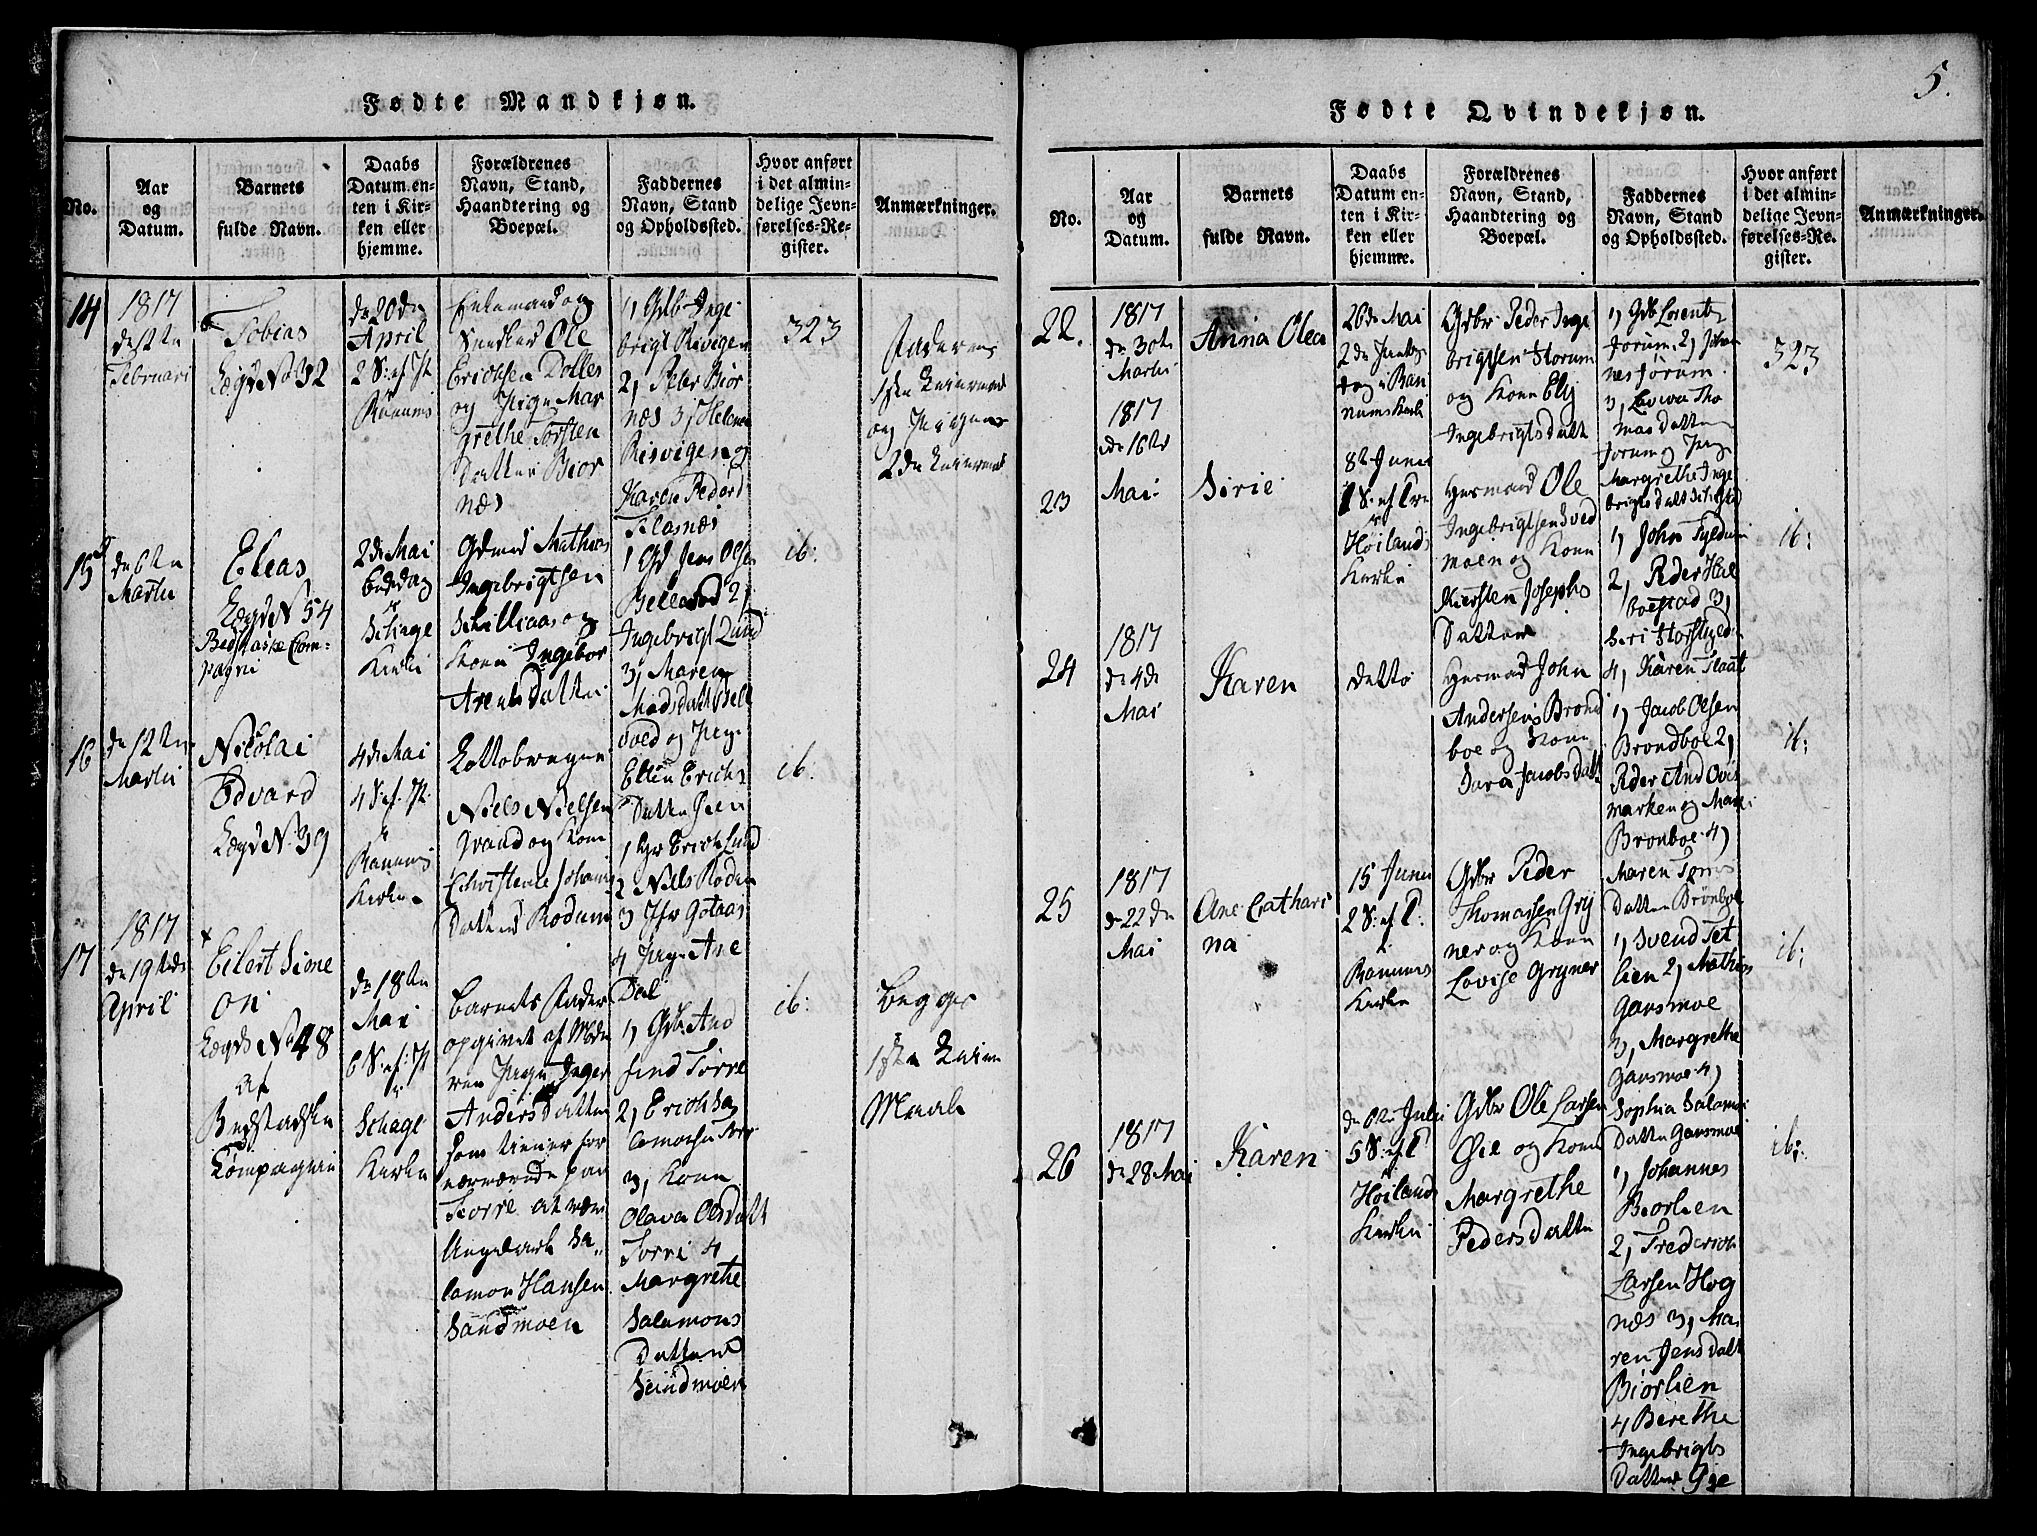 5.
Fødte Mandkjøn.
No.
Aar
og
Datum.
Barnets
fulde Navn.
Daabs
Datum en-
ten i Kir-
ken eller
hjemme.
Forældrenes
Navn, Stand,
Haandtering og
Boepæl.
Faddernes
Navn, Stand
og Opholdssted.
Hvor anført
i det almin-
delige Jevn-
førelses-Re-
gister.
Anmærkninger.
14
1817
de 12te
Februari
Tobias
Lægd No 32
de 20de
April
2 S: ef. P.
Ranems
Enkemand og
Ole
Erichsen Dolles
og Pige Mar
grethe Torsten
Datter Bior
næs
1, Gdb. Inge
brigt Risvigen
2, Peter Bior
næs 3, Helena
Risvigen og
Karen Peders
323
Faderens
1ste Leiermaal
og Pigens
2de Leiermaal
15
de 6te
Martii
Eleas
Lægd No 54
Compagni
2de Mai
Bededag
Kirke
Gdmd Mathias
Ingebrigtsen
og
Kone Ingebor
Arents Datter
1 Gd Jens Olsen
2,
Ingebrigt Qulid
3, Maren
Mads datt Bell
og Pige
Ellen Erichs
Datter
ib:
16
de 12te
Martii
Nicolai
Edvard
Lægd No. 39
4de Mai
4 S. ef. P.
i
Ranems
Kirke
Niels Nielsen
og Kone
Christence Johannis
Datter Rodum
1 Erich Lund
2 Niels Rodum
3
4 Pige Ane
Dal
ib.
17
1817
de 19de
April
Eilert Sime
on
Lægds No 48
af
Bedstadske
Compagnie
de 18te
Mai
6 S: ef: P
i
Schage
Kirke
Barnets Fader
opgivet af Mode
ren Pige Inger
Anders Datter
som tiener for
nærværende paa
Torre at være
Ungkarl Sa-
lamon Hansen
Sandmoen
1, Gdb. And
find Torre
2, Erich Sa
lamonsen Torre
3, Kone
Olava Olsdatt
Torri 4
Margrethe
Salamons
Datter
Sandmoen
ib:
Begges
1ste Leier
Maal
Fødte Qvindekjøn.
No.
Aar
og
Datum.
Barnets
fulde Navn.
Daabs
Datum en-
ten i Kir-
ken eller
hjemme.
Forældrenes
Navn, Stand,
Haandtering og
Boepæl.
Faddernes
Navn, Stand
og Opholdssted.
Hvor anført
i det almin-
delige Jevn-
førelses-Re-
gister.
Anmærkninger.
22.
1817
de 30te
Martii
Anna Olea
26de Mai
2de Pintse
dag i Ran
nems Kirke
Gdbr Peder Inge
brigtsen Horum
og Kone Elj
Ingebrigts Datt
1, Gdb Lorents
Jørum, 2, Johan
nes Jørum
3, Lovisa Tho
mas Datter
Jorum og Pige
Margrethe Inge
brigts datt
323
23
1817
de 16te
Mai
Sirie
8de Junii
1 S: ef Tre
i
Høilands
Kirke
Huusmand Ole
Ingebrigtsen Sved
moen og Kone
Kiersten Josephs
Datter
1, John Fyldum
2, Peder Hal
boestad 3,
Seri
4, Karen Flaat
ib:
24
1817
de 4de
Mai
Karen
detto
Husmand John
Andersens Brond
boe og Kone
Sara Jacobs Datt
1, Jacob Olsen
Brondboe 2,
Peder And Ovis
marken og Mari
Bronboe 4,
Maren Tønis
Datter Brønboe
ib:
25
1817
de 22de
Mai
Ane Cathari
na
15 Junii
2 S: ef T.
i
Ranems
Kirke
Gdbr Peder
Thomassen Grÿ
ner og Kone
Lovise Grÿner
1, Svend Tet
lien 2, Mathias
Gansmoe
3, Margrethe
Gansmoe 4,
Sophia Salamons
Datter Gansmoe
ib:
26
1817
de 28 Mai
Karen
de 6te Julii
5 S: ef T
i
Høilands
Kirke
Gdbr Ole Larsen
Øie og Kone
Margrethe
Peders Datter
1, Johannes
Biorlien
2, Frederich
Larsen Høg
næs 3, Ma
ren Jens Datt
Biorlien
4 Berethe
Ingebrigts
Datter Øie
ib: